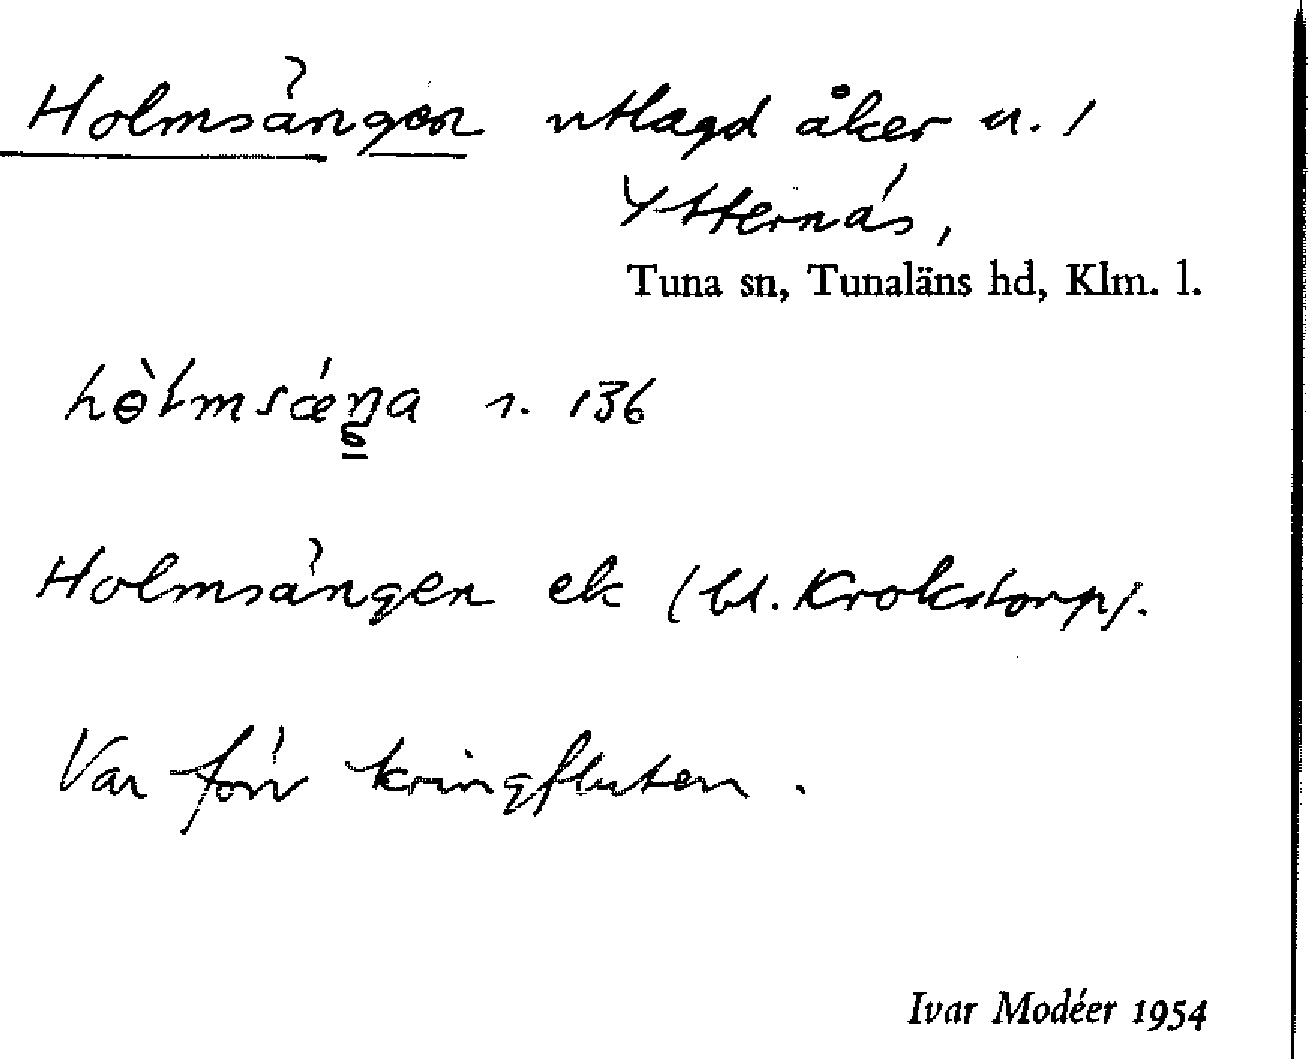 Holmsängen utlagd åker u. /
Ytternäs,
Tuna sn, Tunaläns hd, Klm. l.
s. 136
Holmsängen ek (bl. Krokstorp).
Var förr kringfluten.
Ivar Modéer 1954